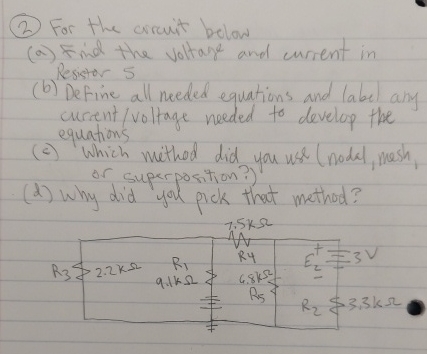 ② For the circuit below
(a) Find the voltage and current in
Resistor 5
(b) Define all needed equations and label any
current/voltage needed to develop the
equations
(c) Which method did you use (nodal, mesh,
or superposition?)
(d) Why did you pick that method?
7.5kΩ
R4
R3 2.2kΩ
R1
9.1kΩ
6.8kΩ
R5
+
E2 3V
-
R2 3.3kΩ